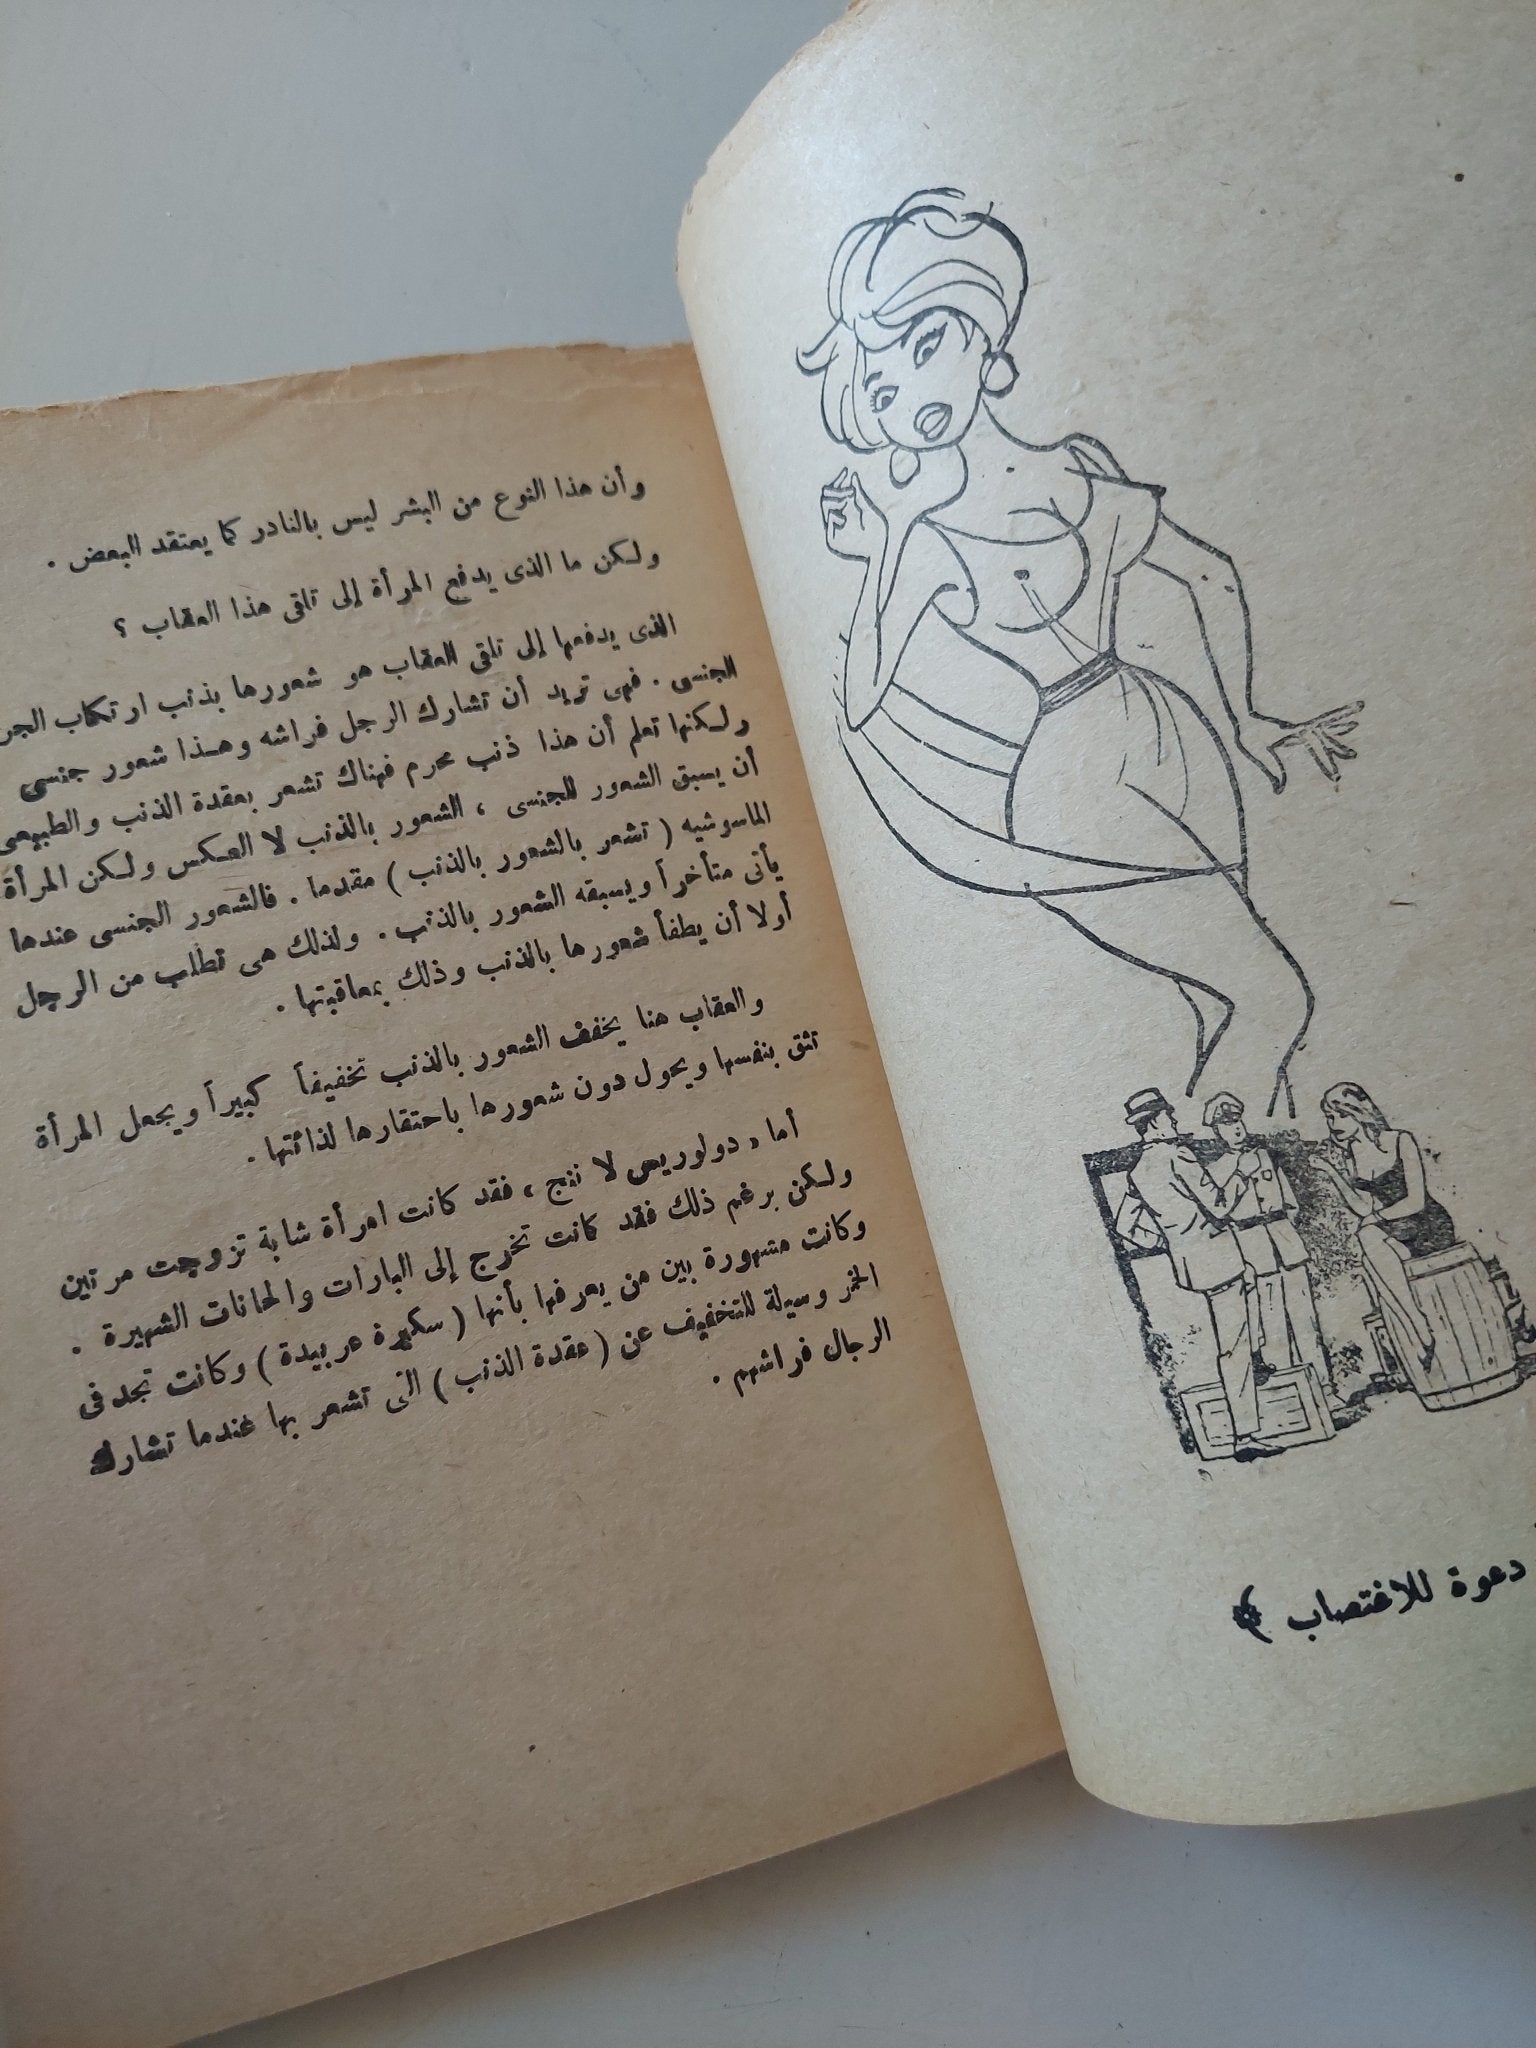 وأن هذا النوع من البشر ليس بالنادر كما يعتقد البعض .
ولكن ما الذى يدفع المرأة إلى تلقى هذا العقاب ؟
الذى يدفعها إلى تلقى العقاب هو شعورها بذنب ارتكاب
الجنسى . فهى تريد أن تشارك الرجل فراشه وهذا شعور جنسى
ولكنها تعلم أن هذا ذنب محرم فهناك تشعر بعقدة الذنب والطبيعى
أن يسبق الشعور الجنسى ، الشعور بالذنب لا العكس ولكن المرأة
الماسوشيه ( تشعر بالشعور بالذنب ) مقدما . فالشعور الجنسى عندها
يأتى متأخراً ويسبقه الشعور بالذنب . ولذلك هى تطلب من الرجل
أولا أن يطفأ شعورها بالذنب وذلك بمعاقبتها .
والعقاب هنا يخفف الشعور بالذنب تخفيفاً كبيراً ويجعل المرأة
تثق بنفسها ويحول دون شعورها باحتقارها لذاتها .
أما « دولوريس لا ننج ، فقد كانت امرأة شابة تزوجت مرتين
ولكن برغم ذلك فقد كانت تخرج إلى البارات والحانات الشهيرة .
وكانت مشهورة بين من يعرفها بأنها ( سكيرة عربيدة ) وكانت تجد فى
الخمر وسيلة للتخفيف عن ( عقدة الذنب ) التى تشعر بها عندما تشارك
الرجال فراشهم .
دعوة للاغتصاب